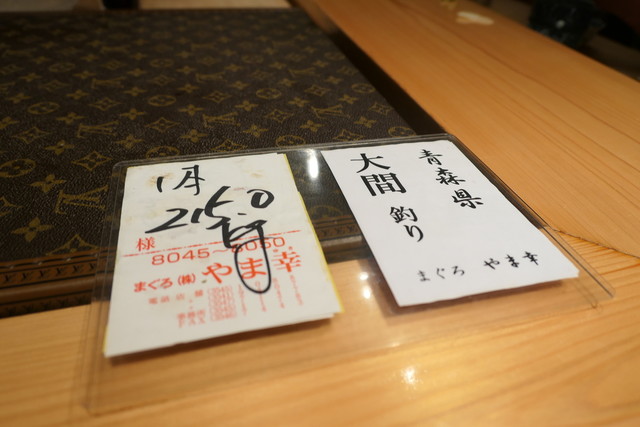 1月
215.0
背
様
8045~8050
まぐろ(株)やま幸
FAX
青森県
大間 釣り
まぐろ やま幸